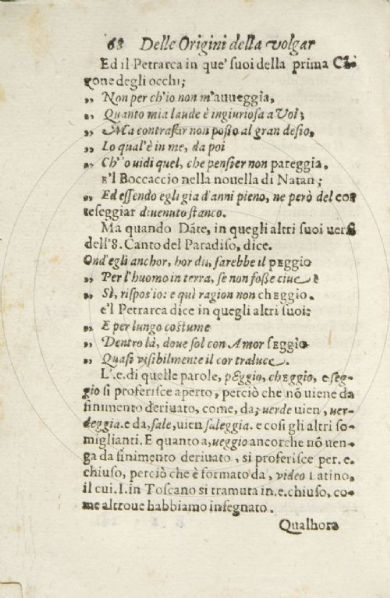 68 Delle Origini della volgar
Ed il Petrarca in que' suoi della prima Cãzone
gone degli occhi;
„ Non per ch'io non m'auueggia,
„ Quanto mia laude è ingiuriosa a Voi;
„ Ma contrastar non posso al gran desio,
„ Lo qual'è in me, da poi
„ Ch'o uidi quel, che pensier non pareggia.
E'l Boccaccio nella nouella di Natan;
„ Ed essendo egli gia d'anni pieno, ne però del cor
„ teseggiar diuenuto stanco.
Ma quando Dãte, in quegli altri suoi versi
dell'8. Canto del Paradiso, dice.
Ond'egli anchor, hor dii, sarebbe il pEggio
„ Per l'huomo in terra, se non foße ciue
„ Sì, rispos'io: e quì ragion non chEggio.
e'l Petrarca dice in quegli altri suoi:
„ E per lungo costume
„ Dentro là, doue sol con Amor sEggio
„ Quasi visibilmente il cor traluce.
L'.e.di quelle parole, pEggio, chEggio, e sEggio
gio si proferisce aperto, perciò che nõ uiene da
finimento deriuato, come, da; uerde uien, uerdeggia.
deggia.e da, sale, uien saleggia. e cosi gli altri somiglianti.
miglianti. E quanto a, ueggio ancorche nõ uenga
ga da finimento deriuato, si proferisce per.e.
chiuso, perciò che è formato da, video Latino,
il cui.I.in Toscano si tramuta in.e.chiuso, come
me altroue habbiamo insegnato.
Qualhora